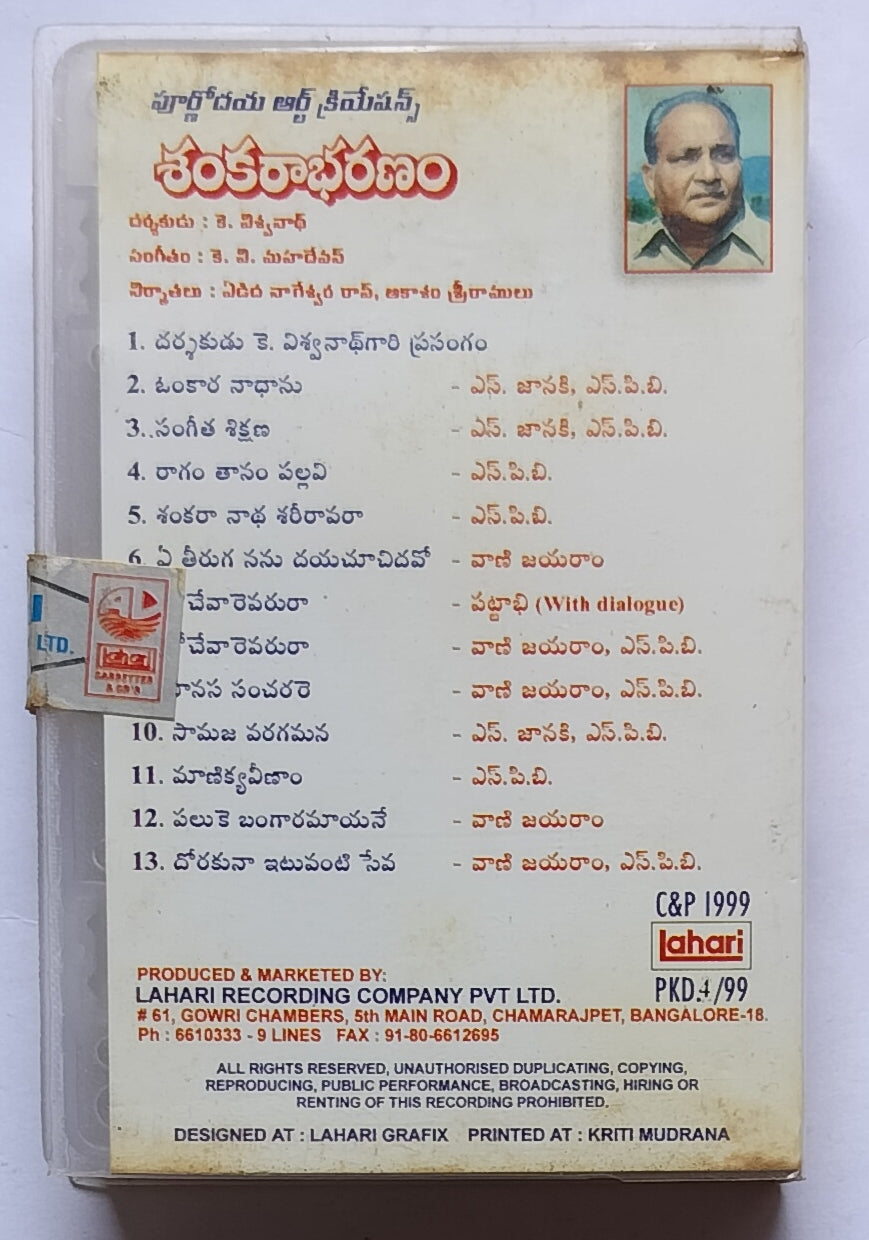 పూర్ణోదయ ఆర్ట్ క్రియేషన్స్
శంకరాభరణం
దర్శకుడు : కె. విశ్వనాథ్
సంగీతం : కె. వి. మహదేవన్
నిర్మాతలు : ఏడిద నాగేశ్వర రావ్, ఆకాశం శ్రీరాములు
1. దర్శకుడు కె. విశ్వనాథ్‌గారి ప్రసంగం
2. ఓంకార నాధాను - ఎస్. జానకి, ఎస్.పి.బి.
3..సంగీత శిక్షణ - ఎస్. జానకి, ఎస్.పి.బి.
4. రాగం తానం పల్లవి - ఎస్.పి.బి.
5. శంకరా నాథ శరీరాపరా - ఎస్.పి.బి.
6. ఏ తీరుగ నను దయచూచిదవో - వాణి జయరాం
చేవారెవరురా - పట్టాభి (With dialogue)
చేవారెవరురా - వాణి జయరాం, ఎస్.పి.బి.
మానస సంచరరె - వాణి జయరాం, ఎస్.పి.బి.
10. సామజ వరగమన - ఎస్. జానకి, ఎస్.పి.బి.
11. మాణిక్యవీణాం - ఎస్.పి.బి.
12. పలుకె బంగారమాయనే - వాణి జయరాం
13. దోరకునా ఇటువంటి సేవ - వాణి జయరాం, ఎస్.పి.బి.
LTD.
lahari
CASSETTES
& CD'S
C&P 1999
lahari
PKD.4/99
PRODUCED & MARKETED BY:
LAHARI RECORDING COMPANY PVT LTD.
# 61, GOWRI CHAMBERS, 5th MAIN ROAD, CHAMARAJPET, BANGALORE-18.
Ph : 6610333 - 9 LINES FAX : 91-80-6612695
ALL RIGHTS RESERVED, UNAUTHORISED DUPLICATING, COPYING,
REPRODUCING, PUBLIC PERFORMANCE, BROADCASTING, HIRING OR
RENTING OF THIS RECORDING PROHIBITED.
DESIGNED AT : LAHARI GRAFIX PRINTED AT : KRITI MUDRANA